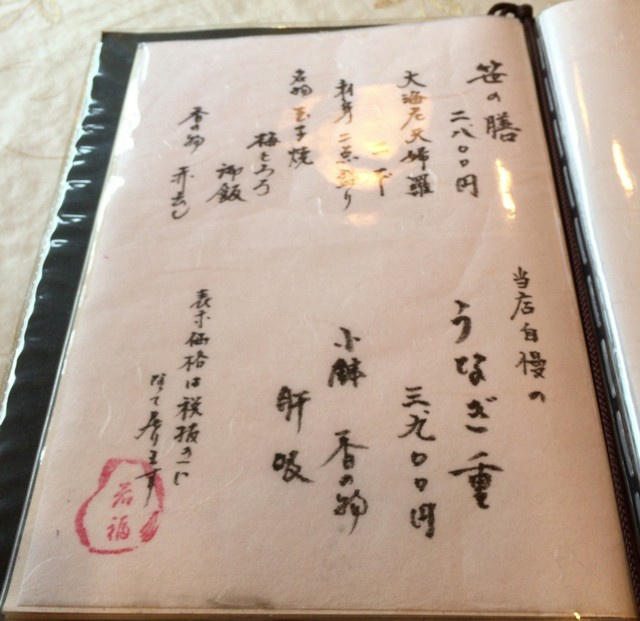 笹の膳
二、八〇〇円
大海老天婦羅
刺身二点盛り
名物玉子焼
梅とろろ
御飯
香の物 赤だし
当店自慢の
うなぎ重
三、九〇〇円
小鉢 香の物
肝吸
表示価格は税抜きに
なって居ります
若福